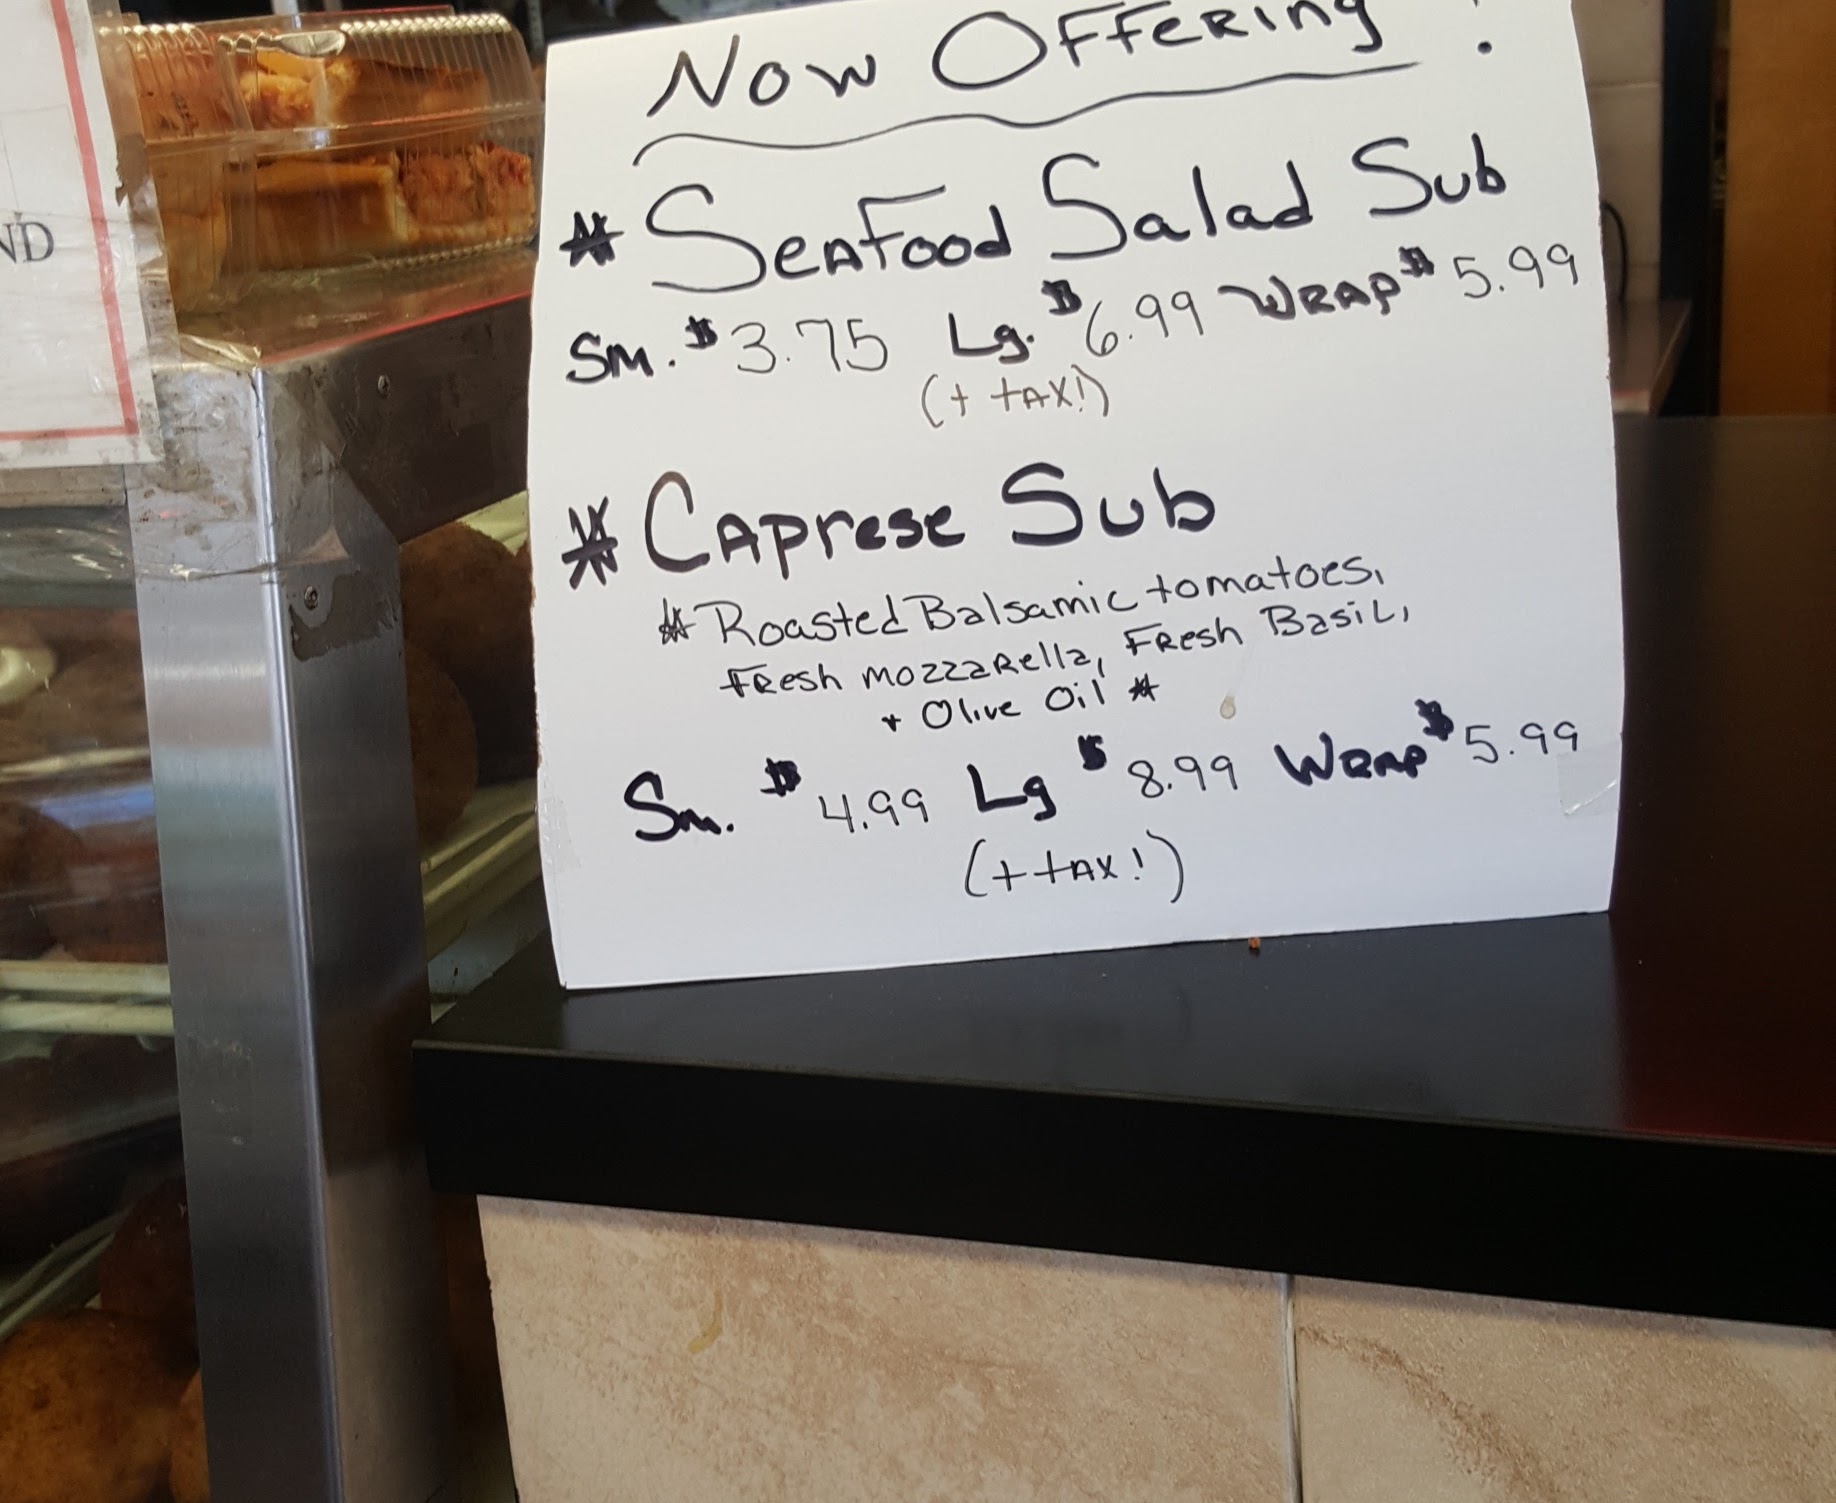 Now Offering!
* Seafood Salad Sub
Sm. $3.75 Lg. $6.99 Wrap $5.99
(+ tax!)
* Caprese Sub
* Roasted Balsamic tomatoes,
Fresh mozzarella, Fresh Basil,
+ Olive Oil *
Sm. $4.99 Lg $8.99 Wrap $5.99
(+ tax!)